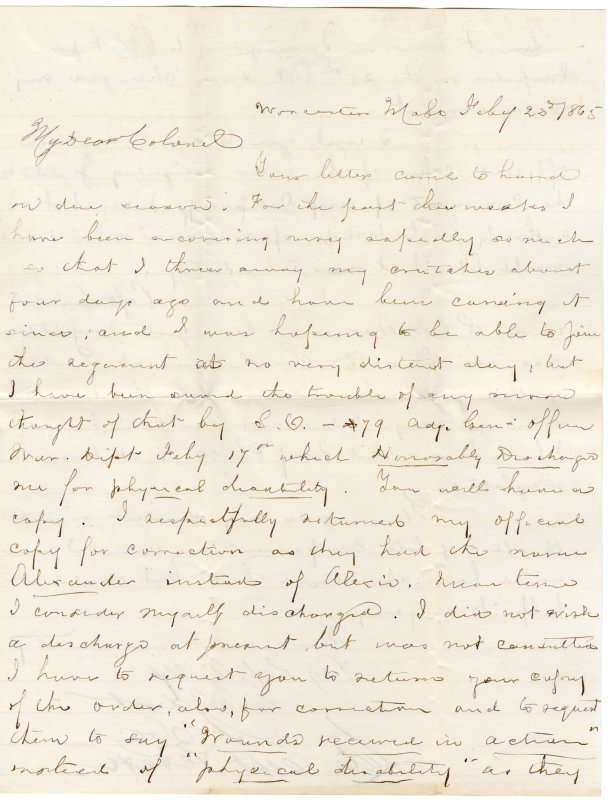 Worcester Mass Feby 23d/1865
My Dear Colonel
Your letter came to hand
in due season. For the past three weeks I
have been recovering very rapidly so much
so that I threw away my crutches about
four days ago and have been caneing it
since; and I was hopeing to be able to join
the regiment at no very distant day, but
I have been saved the trouble of any more
thought of that by S.O. - 79 Adj. Genl office
War. Dept Feby 17th which Honorably Discharges
me for physical disability. You will have a
copy. I respectfully returned my official
copy for correction as they had the name
Alexander instead of Alexis. Mean time
I consider myself discharged. I did not wish
a discharge at present, but was not consulted
I have to request you to return your copy
of the order, also, for correction and to request
them to say "Wounds received in action"
instead of "physical disability" as they